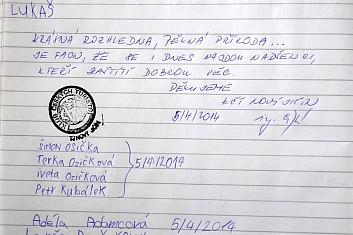 LUKÁŠ
KRÁSNÁ ROZHLEDNA, PĚKNÁ PŘÍRODA...
JE FAJN, ŽE SE I DNES NAJDOU NADŠENCI,
KTEŘÍ ZAŠTÍTÍ DOBROU VĚC.
DĚKUJEME
KČT NOVÝ JIČÍN
5/4/2014
ŠIMON OSIČKA
Terka Osičková
iveta Osičková
Petr Kubálek
5/4/2014
Adéla Adamcová 5/4/2014